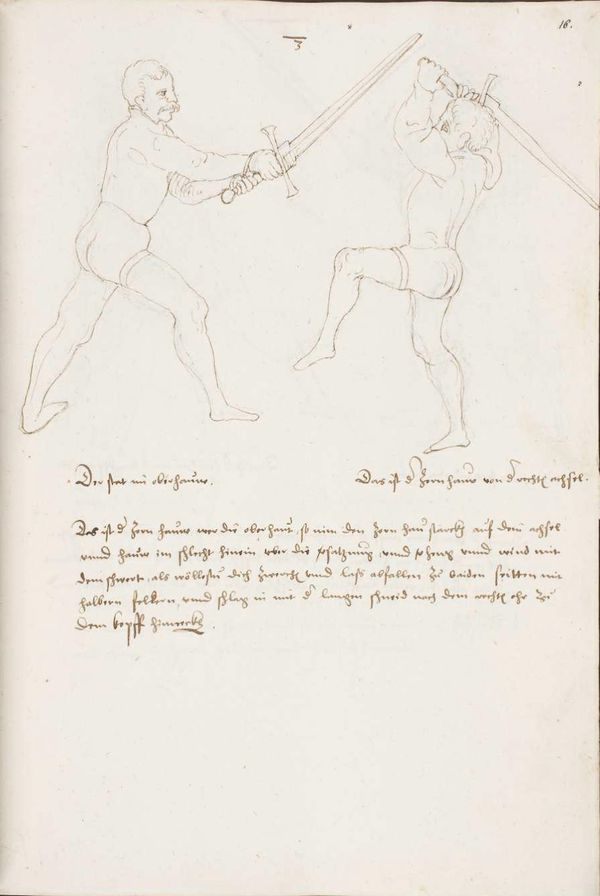 18.
3
Der stat im oberhauw.
Das ist d Zornhauw von d rechtn achsel.
Das ist d Zorn hauw wer die oberhaut, so nim den Zorn hau starckh auf dein achsel
vnnd hauw im schlecht hinein vber die vnnd vnnd wind mit
dem schwert, als wöllestu dich vnnd lass abfallen Zu baiden seitten mit
halbem, vnnd schlag in mit d langen schneid nach dem rechtn ohr Zu
dem kopff hinweckh.